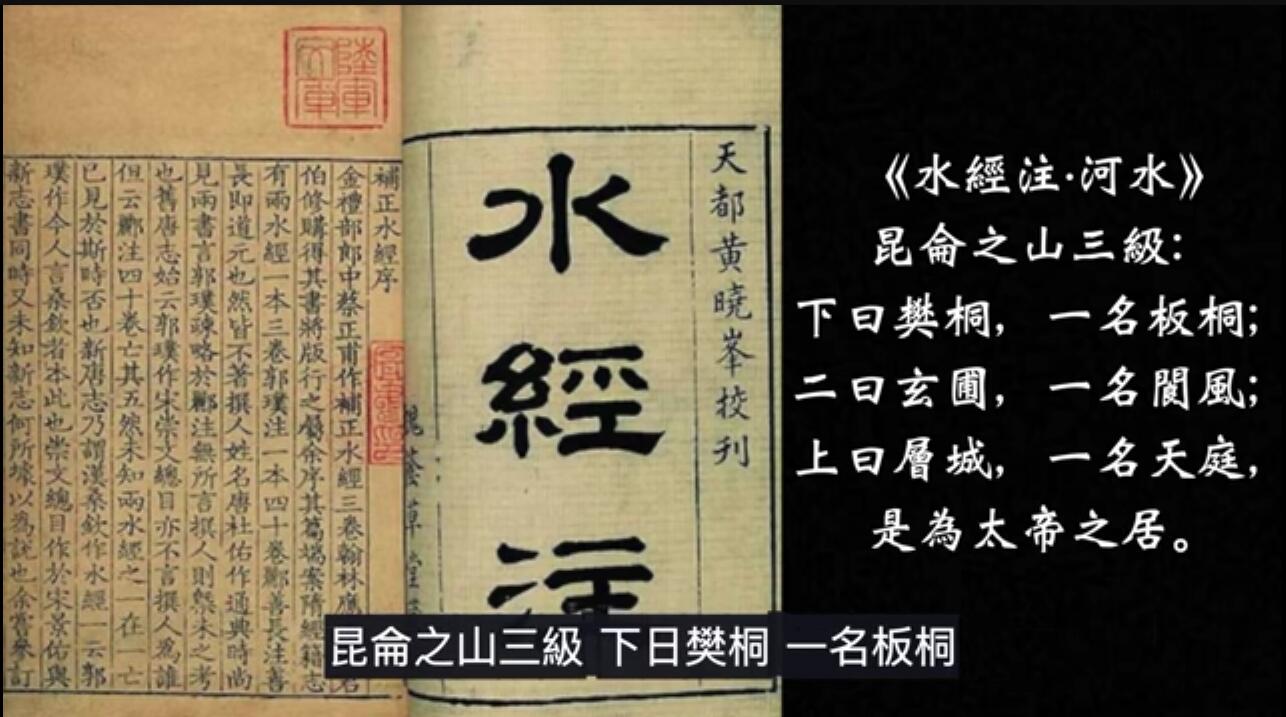 補正水經序
金禮部郎中蔡正甫作補正水經三卷翰林應
伯修購得其書將版行之屬余序其篇端案隋經籍志
有兩水經一本三卷郭璞注一本四十卷酈善長注善
長即道元也然皆不著撰人姓名唐杜佑作通典時尚
見兩書言郭璞疎略於酈注無所言撰人則槩未之考
也舊唐志始云郭璞作宋崇文總目亦不言撰人為誰
但云酈注四十卷亡其五然未知兩水經之一在一亡
已見於斯時否也新唐志乃謂漢桑欽作水經一云郭
璞作今人言桑欽者本此也崇文總目作於宋景佑與
新志書同時又未知新志何所據以為說也余嘗參訂
天都黃曉峯挍刊
水經注
《水經注·河水》
昆侖之山三級：
下曰樊桐，一名板桐；
二曰玄圃，一名閬風；
上曰層城，一名天庭，
是為太帝之居。
昆侖之山三級 下日樊桐 一名板桐